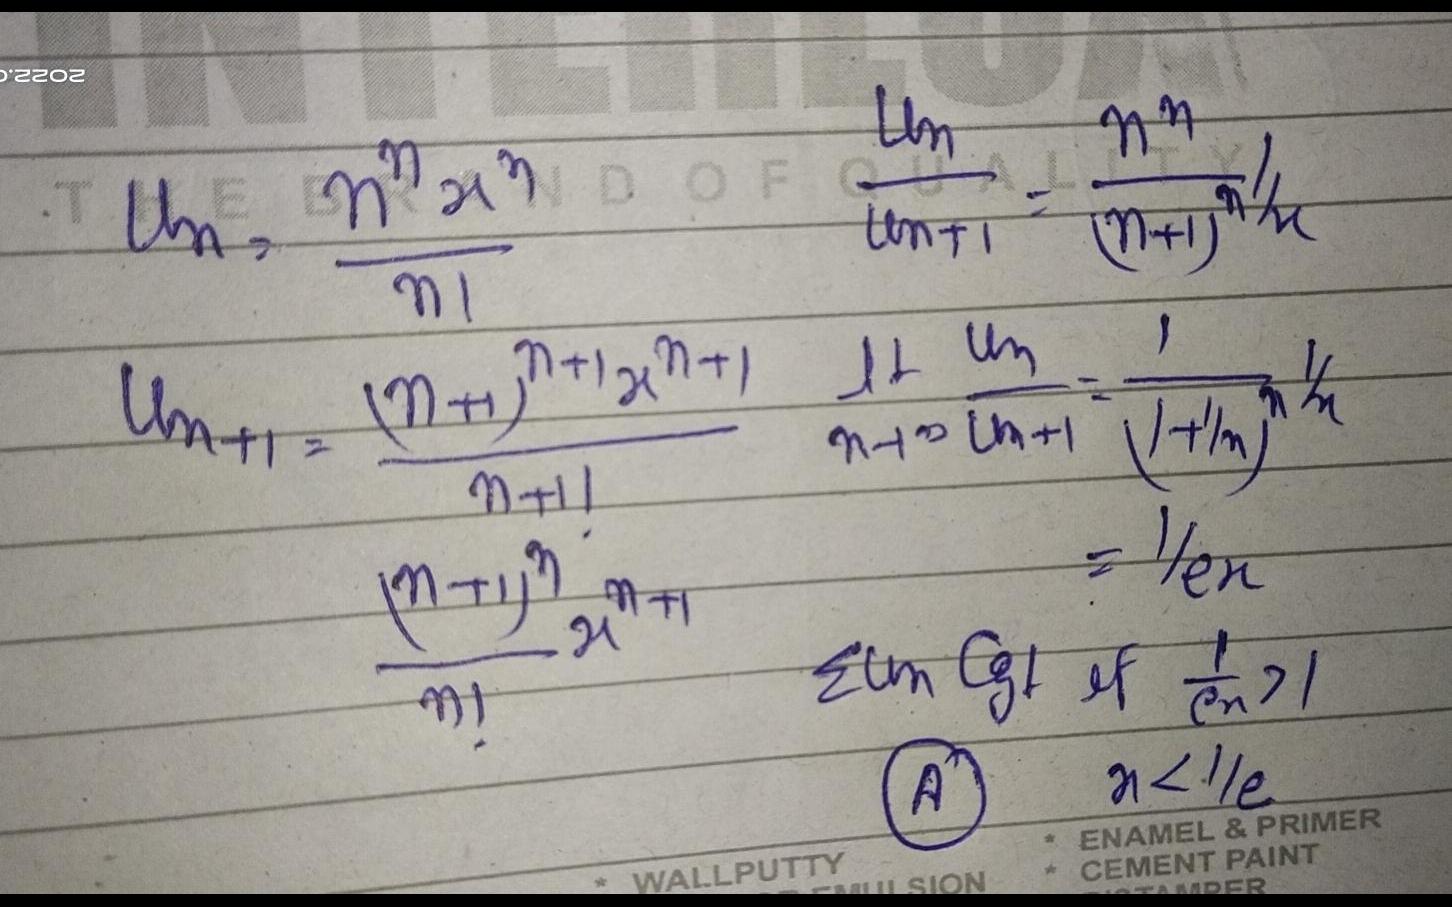 INTERLUX
THE BRAND OF QUALITY
Un = n^n x^n / n!
Un+1 = (n+1)^n+1 x^n+1 / n+1!
(n+1)^n / n! x^n+1
Un / Un+1 = n^n / (n+1)^n 1/x
lt n→∞ Un / Un+1 = 1 / (1+1/n)^n 1/x
= 1/ex
ΣUn Cgt if 1/ex > 1
A x < 1/e
* WALLPUTTY
EMULSION
* ENAMEL & PRIMER
* CEMENT PAINT
DISTAMPER